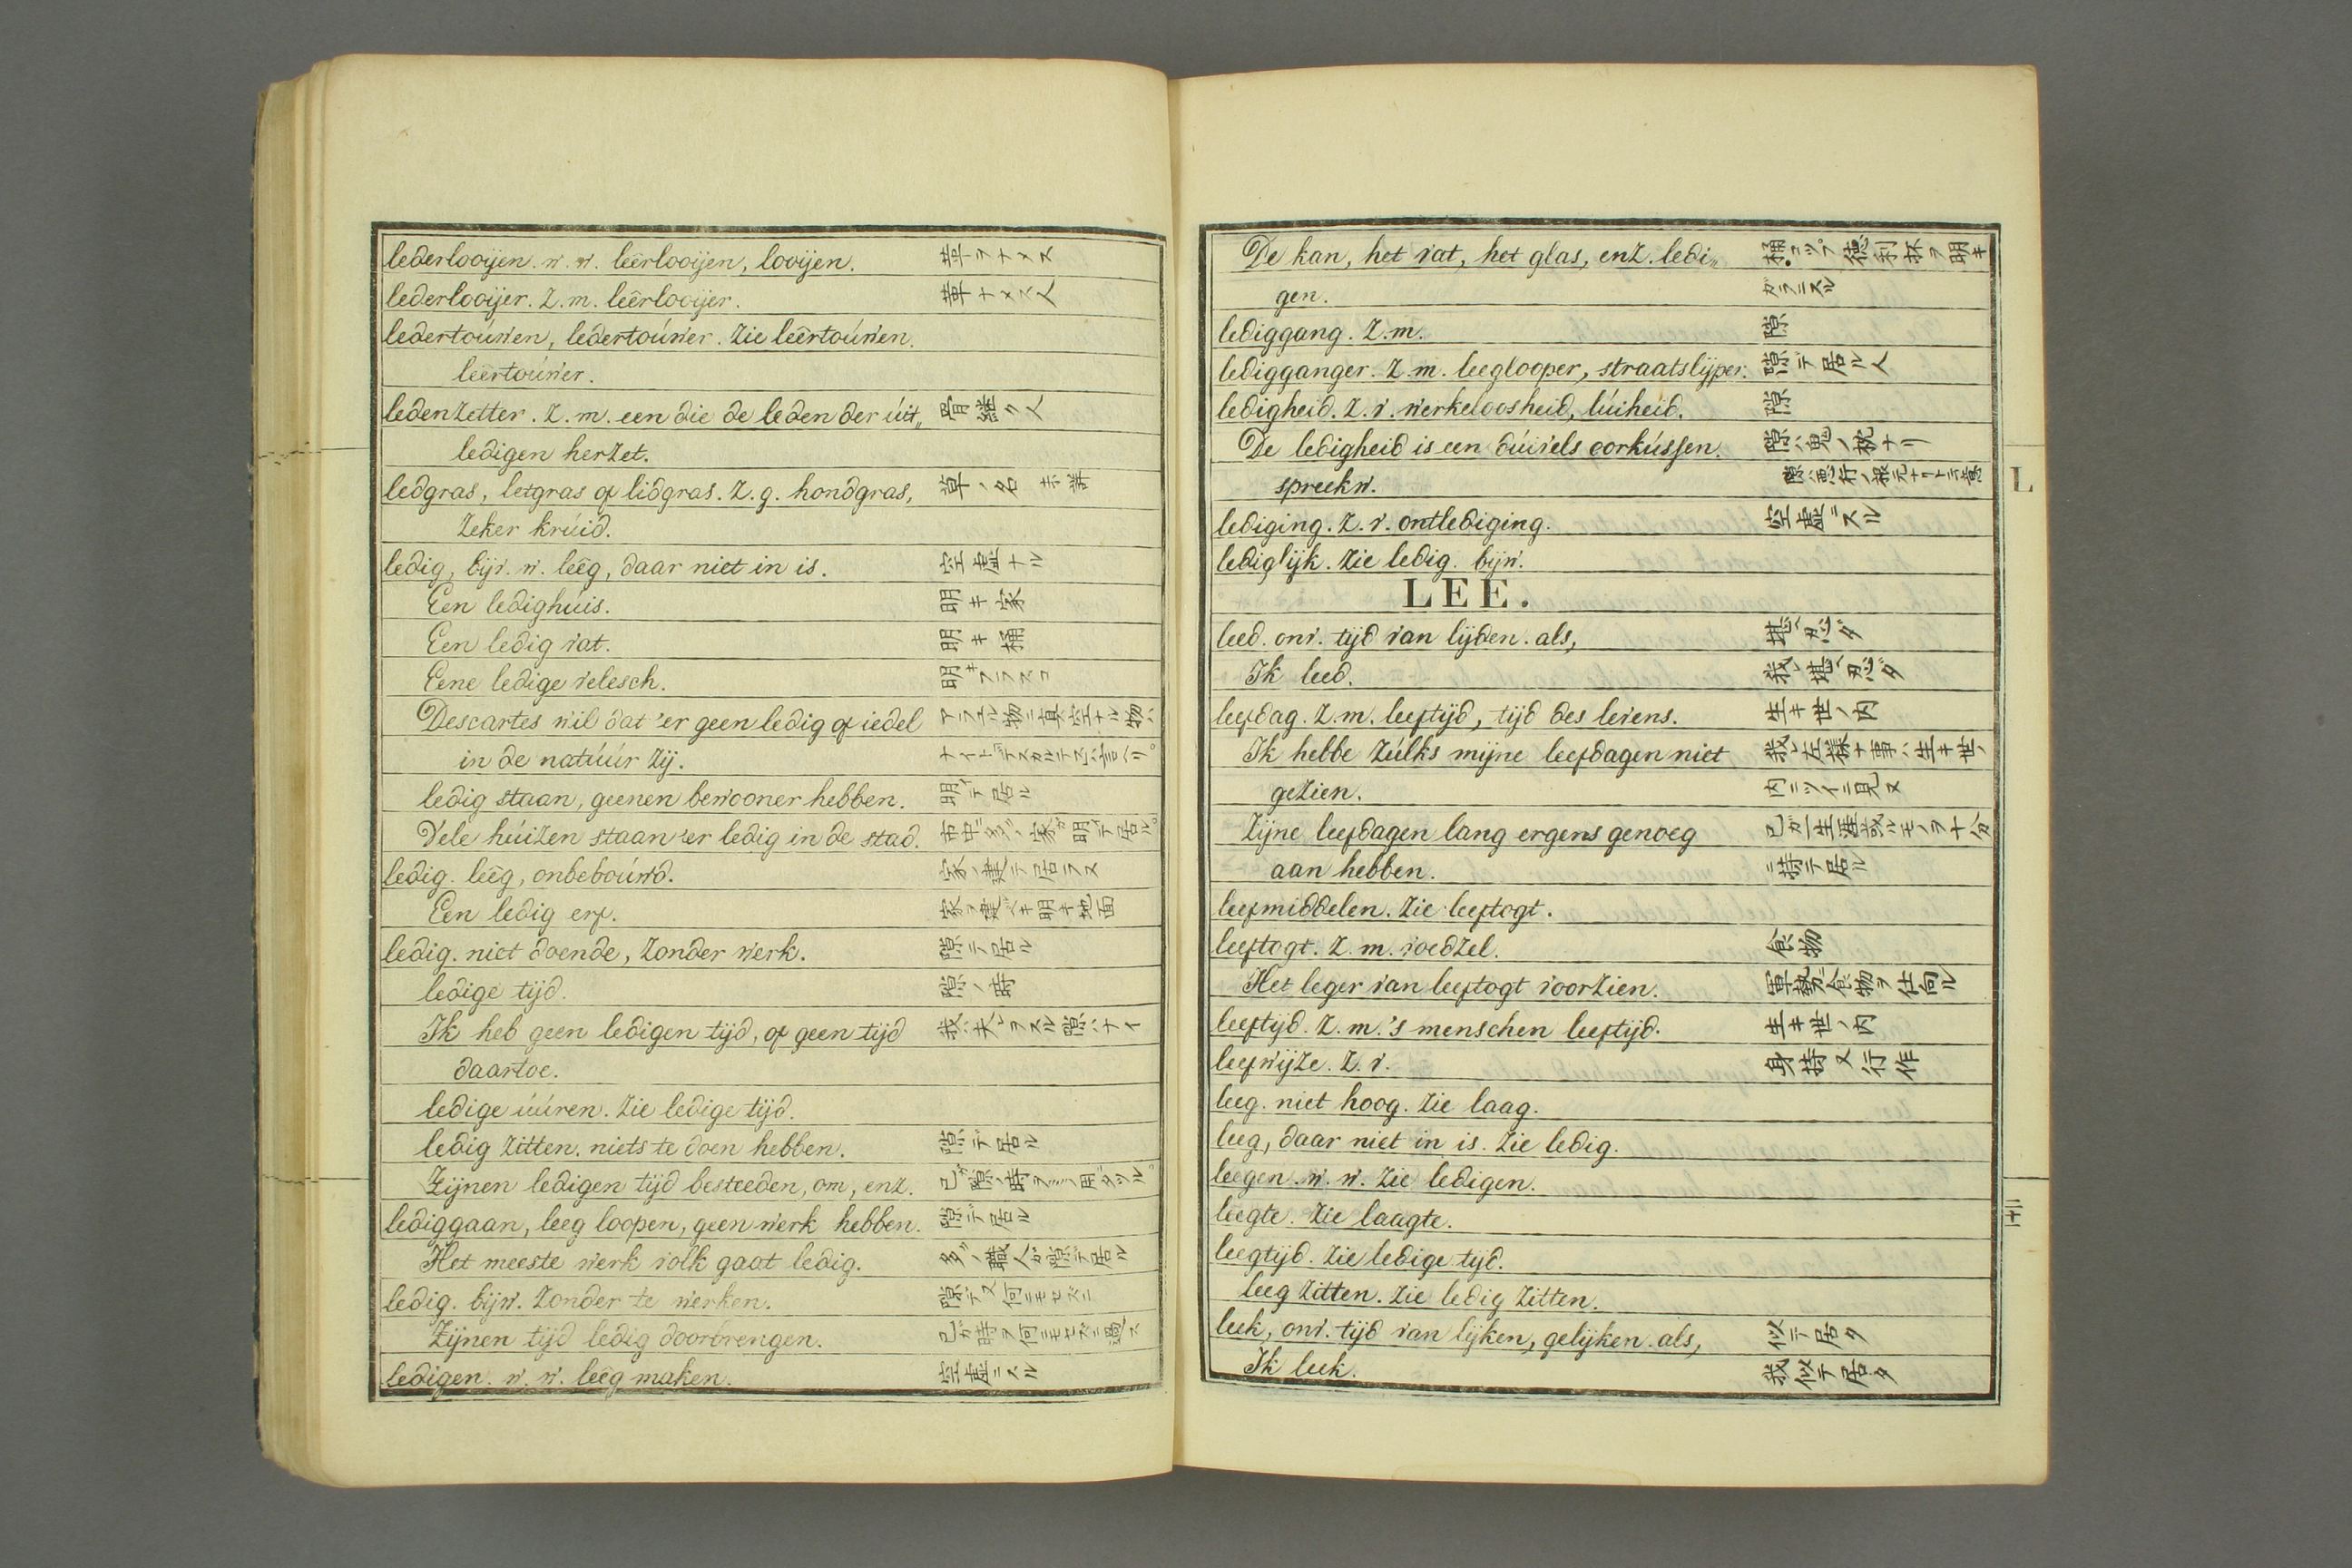 lederlooijen. w. w. leêrlooijen, looijen. 革ヲナメス
lederlooijer. Z. m. leêrlooijer. 革ナメス人
ledertoúwen, ledertoúwer. Zie leêrtoúwen.
leêrtoúwer.
ledenzetter. Z. m. een die de leden der úit„ 骨継ク人
ledigen herzet.
ledgras, letgras of lidgras. Z. g. hondgras, 草ノ名 未詳
Zeker krúid.
ledig, bijv. w. leêg, daar niet in is. 空虚ナル
Een ledighúis. 明キ家
Een ledig vat. 明キ桶
Eene ledige vlesch. 明キフラスコ
Descartes wil dat 'er geen ledig of iedel アラユル物ニ真空ナル物ハ
in de natúúr Zij. ナイトデスカルテスハ言ヘリ。
ledig staan, geenen bewooner hebben. 明テ居ル
Vele húizen staan 'er ledig in de stad. 市中ニ多クノ家ガ明テ居ル。
ledig. leêg, onbeboúwd. 家ノ建テ居ラヌ
Een ledig erf. 家ヲ建ベキ明キ地面
ledig. niet doende, Zonder werk. 隙テ居ル
ledige tijd. 隙ノ時
Ik heb geen ledigen tijd, of geen tijd 我ハ夫レヲスル隙ハナイ
daartoe.
ledige úúren. Zie ledige tijd.
ledig Zitten. niets te doen hebben. 隙デ居ル
Zijnen ledigen tijd besteeden, om, enz.
lediggaan, leeg loopen, geen werk hebben. 隙デ居ル
Het meeste werk volk gaat ledig. 多クノ職人ガ隙デ居ル
ledig. bijw. Zonder te werken. 隙デ又何ニモセズニ
Zijnen tijd ledig doorbrengen. 己ガ時ヲ何ニモセズニ過ス
ledigen. w. w. leêg maken. 空虚ニスル
De kan, het vat, het glas, enz. ledi„ 桶コップ徳利抔ヲ明キ
gen. カラニスル
lediggang. Z. m. 隙
ledigganger. Z. m. leeglooper, straatslijper. 隙デ居ル人
ledigheid. Z. v. werkeloosheid, lúiheid. 隙
De ledigheid is een dúivels oorkússen. 隙ハ鬼ノ枕ナリ
spreekw. 隙ハ悪行ノ根元ナリト云意
L
lediging. Z. v. ontlediging. 空虚ニスル
lediglijk. Zie ledig. bijw.
LEE.
leed. onv. tijd van lijden. als, 堪ヘ忍ンダ
Ik leed. 我レ堪ヘ忍ンダ
leefdag. Z. m. leeftijd, tijd des levens. 生キ世ノ内
Ik hebbe Zúlks mijne leefdagen niet 我レ左様ナ事ハ生キ世ノ
gezien. 内ニツイニ見ヌ
Zijne leefdagen lang ergens genoeg 己ガ一生涯或ルモノヲ十分
aan hebben. ニ持テ居ル
leefmiddelen. Zie leeftogt.
leeftogt. Z. m. voedzel. 食物
Het leger van leeftogt voorzien. 軍勢ニ食物ヲ仕向ル
leeftijd. Z. m. 's menschen leeftijd. 生キ世ノ内
leefwijze. Z. v. 身持又行作
leeg. niet hoog. Zie laag.
leeg, daar niet in is. Zie ledig.
leegen. w. w. Zie ledigen.
leegte. Zie laagte.
leegtijd. Zie ledige tijd.
leeg Zitten. Zie ledig Zitten.
leek, onv. tijd van lijken, gelijken. als, 似テ居タ
Ik leek. 我似テ居タ